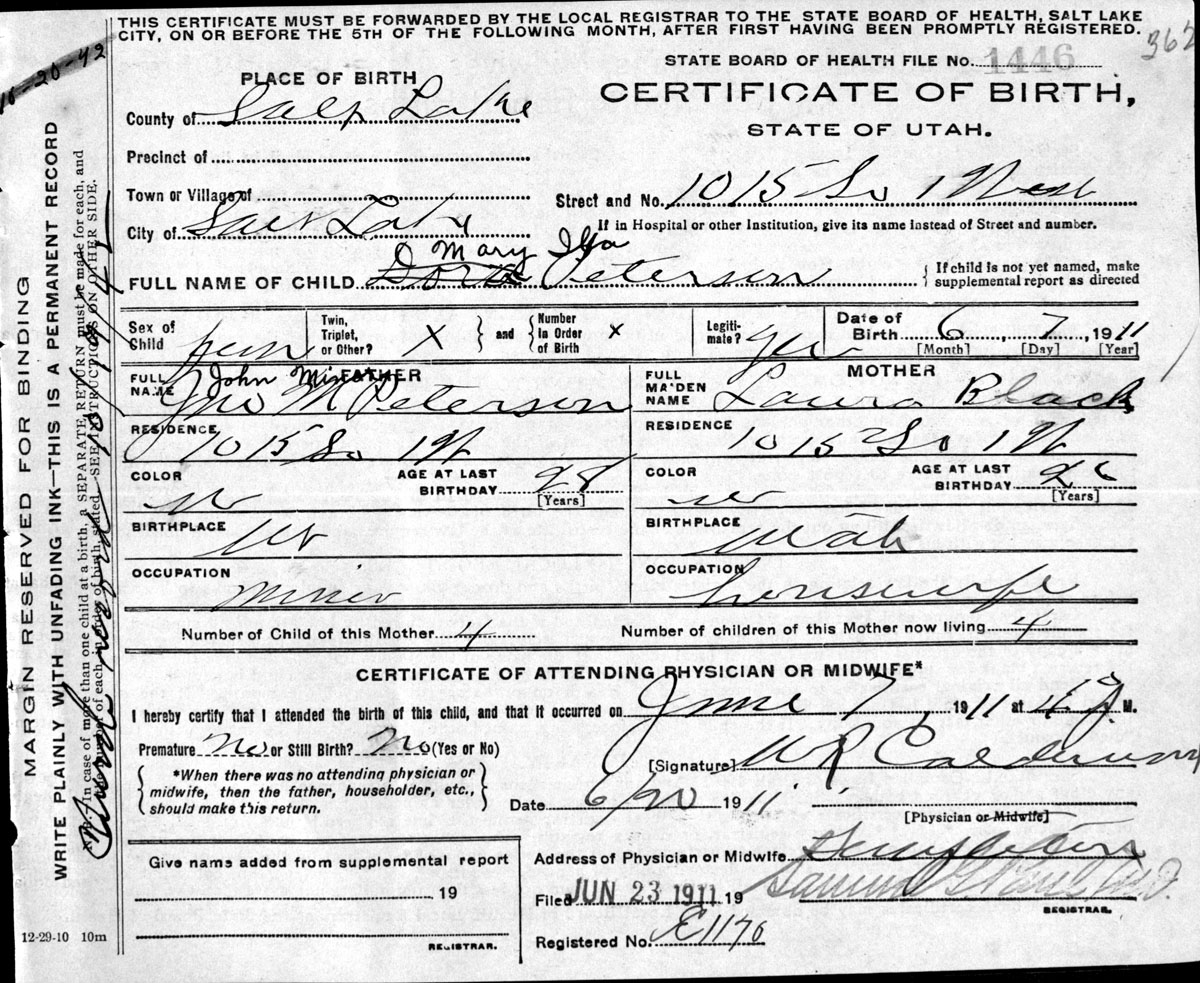 THIS CERTIFICATE MUST BE FORWARDED BY THE LOCAL REGISTRAR TO THE STATE BOARD OF HEALTH, SALT LAKE
CITY, ON OR BEFORE THE 5TH OF THE FOLLOWING MONTH, AFTER FIRST HAVING BEEN PROMPTLY REGISTERED.
362
-20-42
STATE BOARD OF HEALTH FILE No. 1446
PLACE OF BIRTH
CERTIFICATE OF BIRTH,
STATE OF UTAH.
County of Salt Lake
Precinct of
Town or Village of
Street and No. 1015 So 1 West
City of Salt Lake
If in Hospital or other Institution, give its name instead of Street and number.
Mary Ila
FULL NAME OF CHILD Dora Peterson
If child is not yet named, make
supplemental report as directed
Sex of Child fem
Twin, Triplet, or Other? X
and
Number in Order of Birth X
Legiti-mate? yes
Date of Birth 6, 7, 1911
[Month] [Day] [Year]
FATHER
MOTHER
John
FULL NAME Jno M Peterson
FULL MAIDEN NAME Laura Black
RESIDENCE 1015 So 1 W
RESIDENCE 1015 So 1 W
COLOR W
AGE AT LAST BIRTHDAY 28
[Years]
COLOR W
AGE AT LAST BIRTHDAY
[Years]
BIRTHPLACE Ut
BIRTHPLACE Utah
OCCUPATION Miner
OCCUPATION housewife
Number of Child of this Mother 4
Number of children of this Mother now living 4
CERTIFICATE OF ATTENDING PHYSICIAN OR MIDWIFE*
I hereby certify that I attended the birth of this child, and that it occurred on June 7, 1911 at M.
Premature No or Still Birth? No (Yes or No)
[Signature] W R Calderwood
*When there was no attending physician or
midwife, then the father, householder, etc.,
should make this return.
Date 6/20 1911
[Physician or Midwife]
Give name added from supplemental report
19
REGISTRAR.
Address of Physician or Midwife
Filed JUN 23 1911 19
REGISTRAR.
Registered No. E1176
12-29-10 10m
MARGIN RESERVED FOR BINDING
WRITE PLAINLY WITH UNFADING INK—THIS IS A PERMANENT RECORD
N. B.—In case of more than one child at a birth, a SEPARATE RETURN must be made for each, and
the number of each, in order of birth, stated. SEE INSTRUCTIONS ON OTHER SIDE.